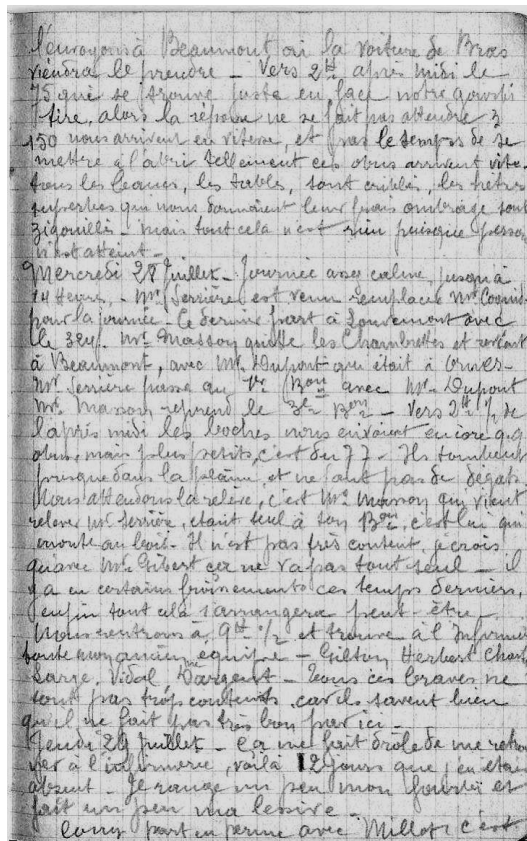 l'envoyons à Beaumont où la voiture de Bras
viendra le prendre - Vers 2H après midi le
75 qui se trouve juste en face notre gourbi
tire, alors la réponse ne se fait pas attendre 3
150 nous arrivent en vitesse, et pas le temps de se
mettre à l'abri tellement ces obus arrivent vite
tous les bancs, les tables, sont criblés, les hêtres
superbes qui nous donnaient leur frais ombrage sont
zigouillés - mais tout cela n'est rien puisque person
n'est atteint -
Mercredi 28 Juillet - Journée assez calme, jusqu'à
14 Heures, - Mr Serrière est venu remplacer Mr
pour la journée - Ce dernier part à Louvemont avec
le 324. Mr Masson quitte les Chambrettes et revient
à Beaumont, avec Mr Dupont qui était à Ornes -
Mr Serrière passe au 1er Bon avec Mr Dupont
Mr Masson reprend le 3e Bon - Vers 2H 1/2 de
l'après midi les boches nous envoient encore q.q.
obus, mais plus petits, c'est du 77 - Ils tombent
presque dans la plaine, et ne font pas de dégats.
Nous attendons la relève, c'est Mr Masson qui vient
relever Mr Serrière, étant seul à son Bon, c'est lui qui
monte au bois - Il n'est pas très content, je crois
qu'avec Mr Gibert ça ne va pas tout seul - il
y a eu certains froissements ces temps derniers,
enfin tout celà s'arrangera peut-être
Nous rentrons à 9H 1/2 et trouve à l'Infirmer
toute mon ancien équipe - Gilton Herbert Charl
Sarge, Vidal Dargent - Tous ces braves ne
sont pas trop contents car ils savent bien
qu'il ne fait pas très bon par ici -
Jeudi 29 Juillet - ça me fait drôle de me retrou
ver à l'infirmerie, voilà 12 jours que j'en étais
absent - Je range un peu mon fourbi et
fait un peu ma lessive -
part en perme avec Millot c'est